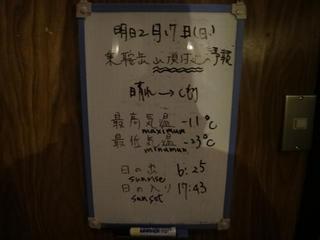 明日2月17日(日)
乗鞍岳山頂付近の予報
晴れ→くもり
最高気温 -11℃
maximum
最低気温 -23℃
minimum
日の出 6:25
sunrise
日の入り 17:43
sunset